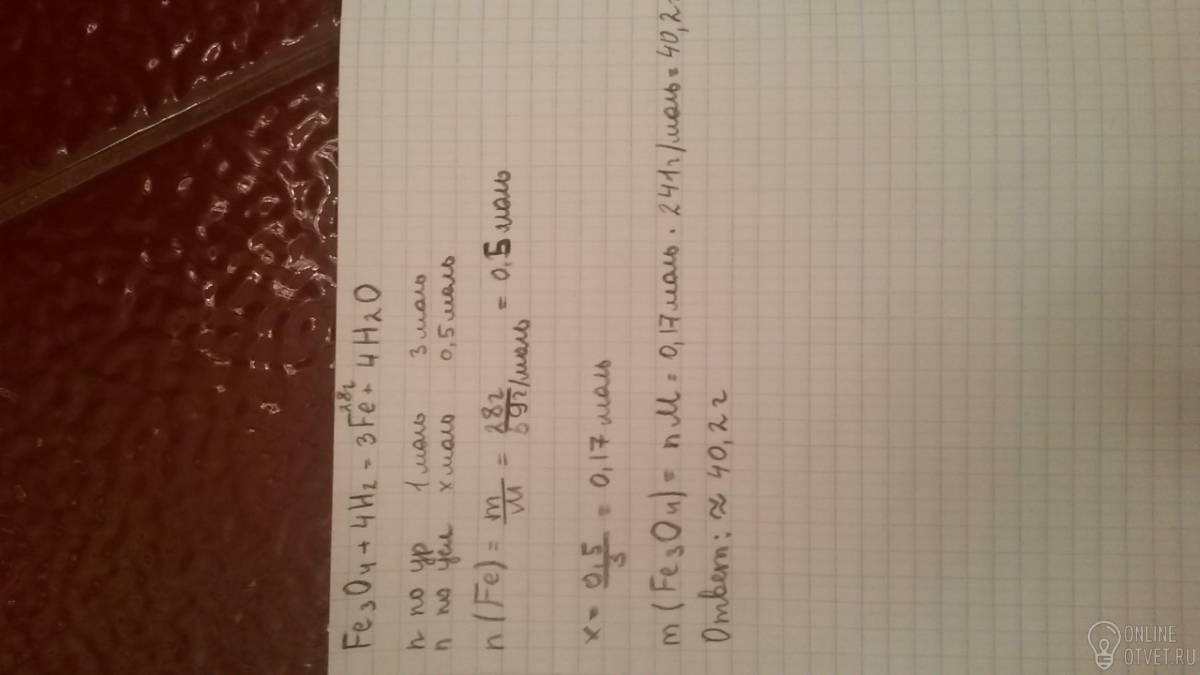 Fe₃O₄ + 4H₂ = 3Fe + 4H₂O
28г
n по ур 1 моль 3 моль
n по усл x моль 0,5 моль
n(Fe) = m/M = 28г/г/моль = 0,5 моль
x = 0,5/3 = 0,17 моль
m(Fe₃O₄) = nM = 0,17 моль · 241 г/моль = 40,2г
Ответ: ≈ 40,2 г
ONLINE
OTVET.RU